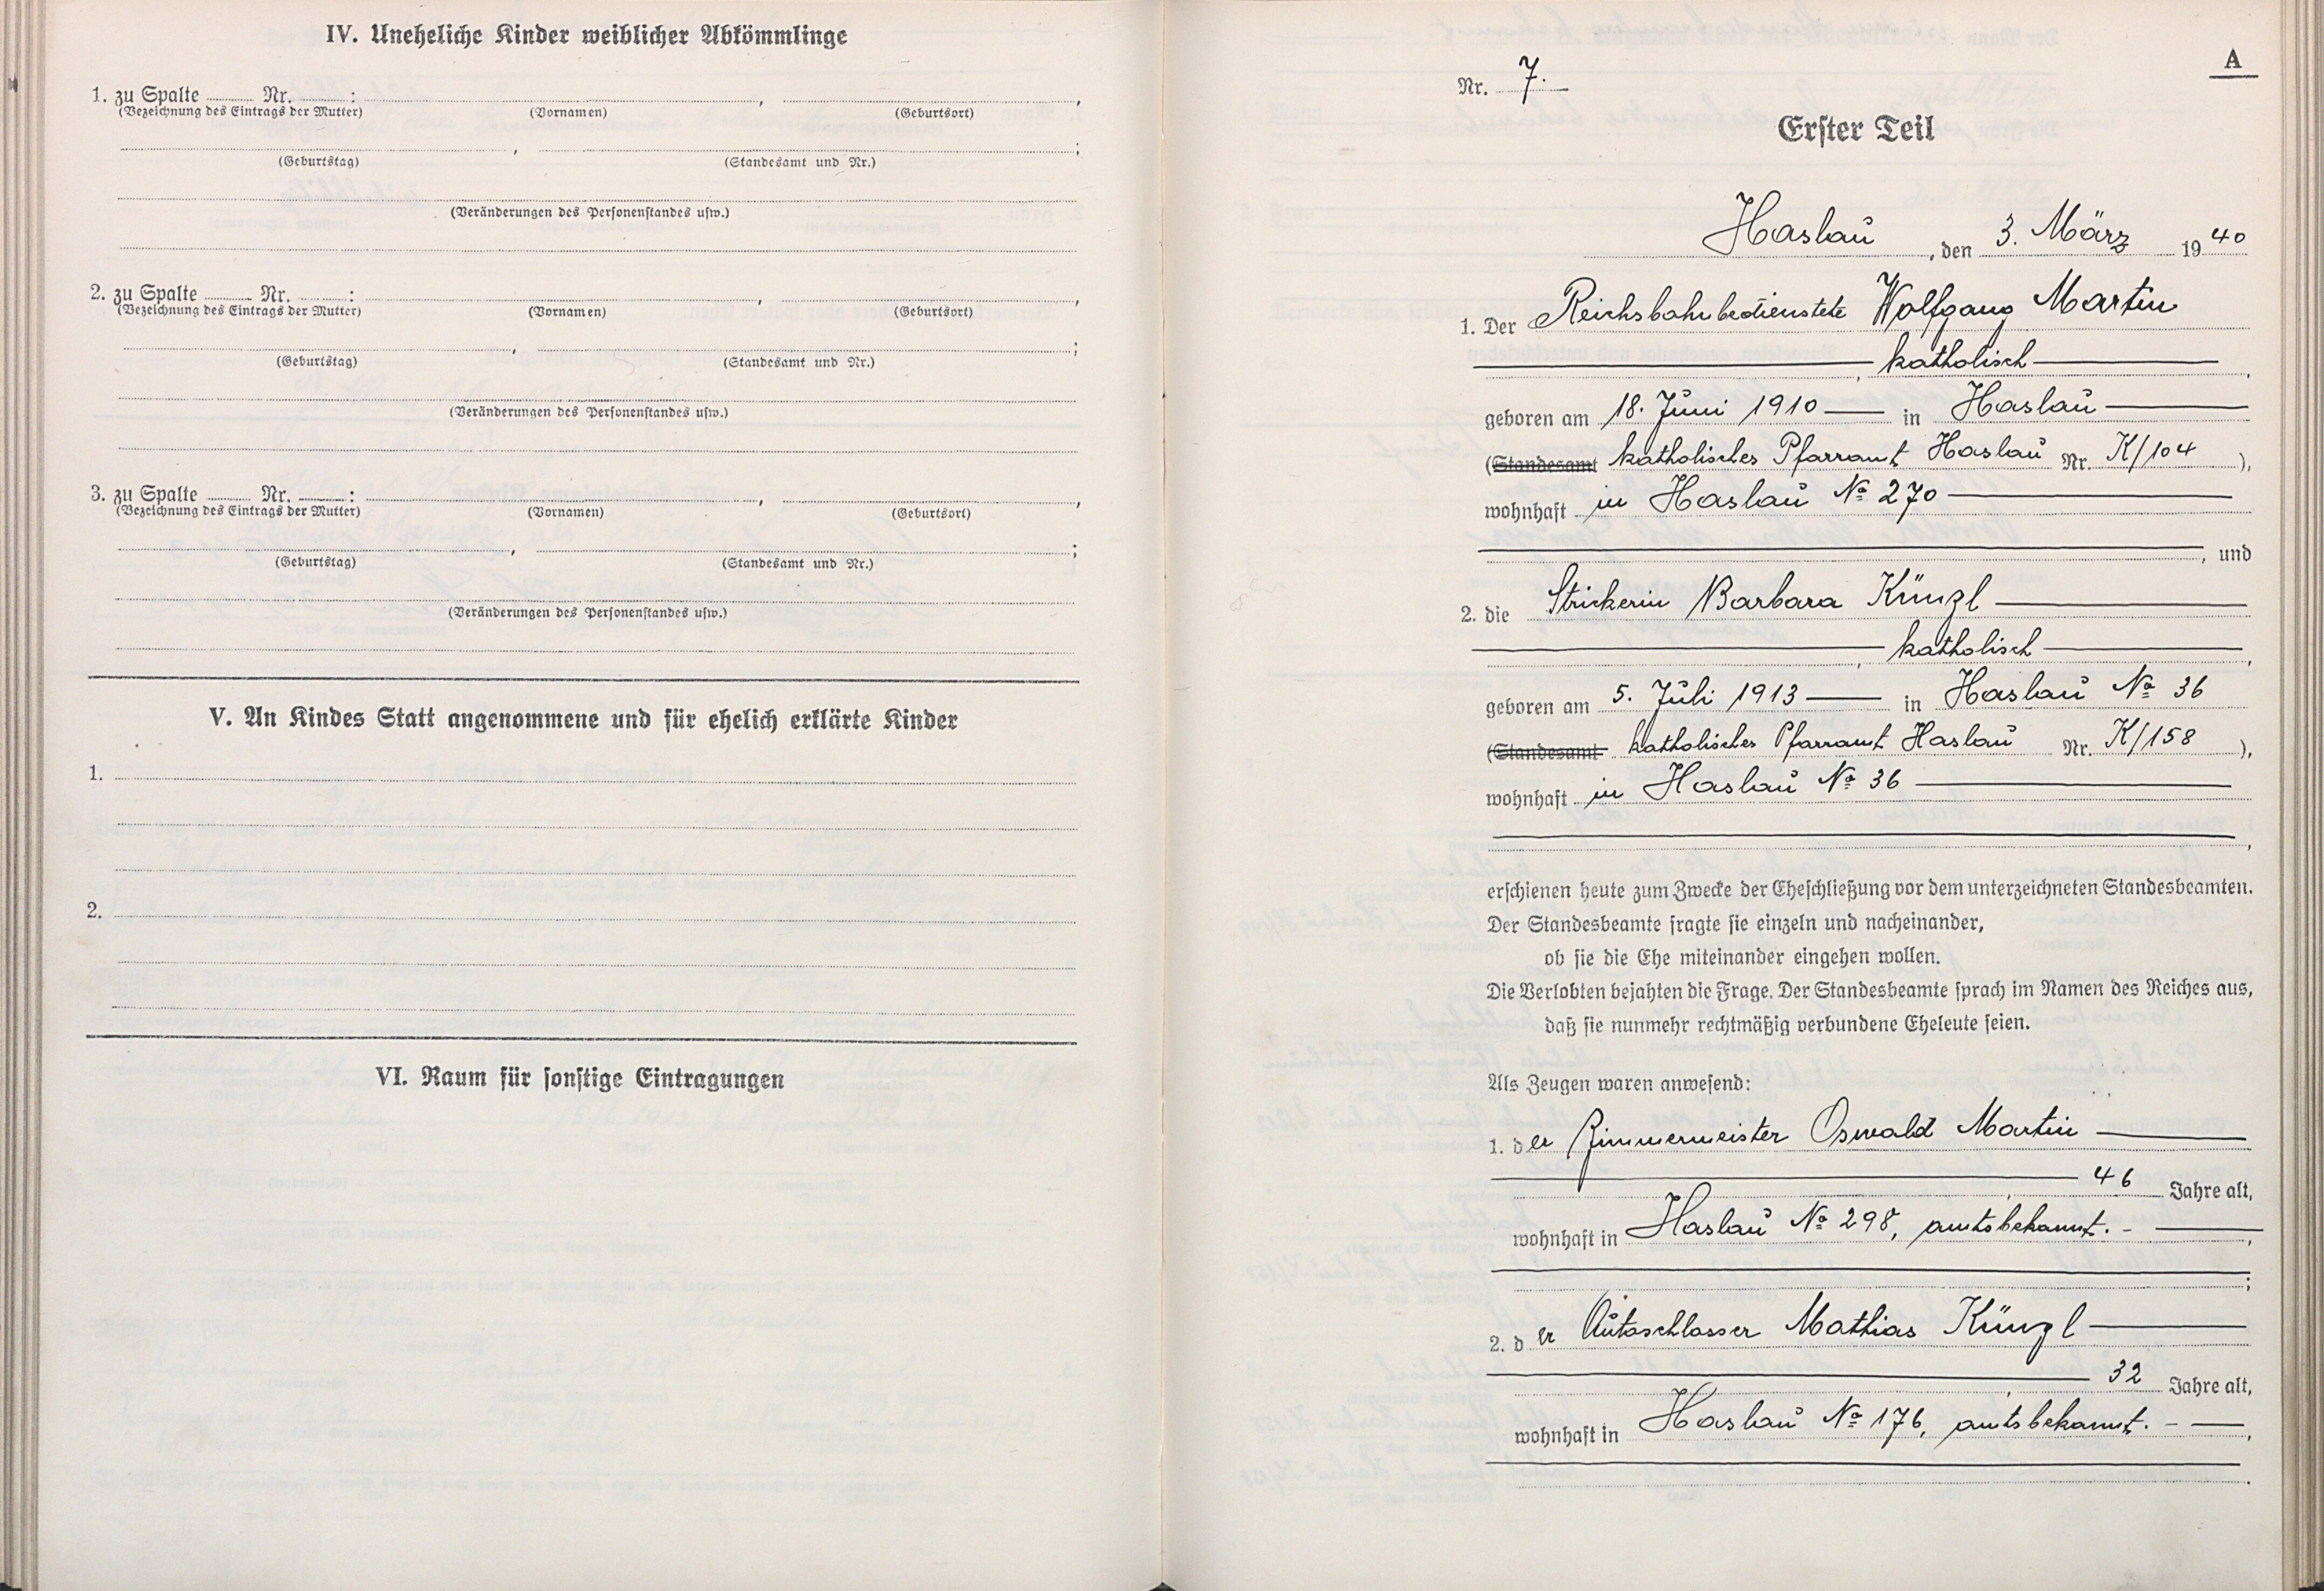 IV. Uneheliche Kinder weiblicher Abkömmlinge
1. zu Spalte ........ Nr. ........ : , ,
(Bezeichnung des Eintrags der Mutter) (Vornamen) (Geburtsort)
, ;
(Geburtstag) (Standesamt und Nr.)
(Veränderungen des Personenstandes usw.)
2. zu Spalte ........ Nr. ........ : , ,
(Bezeichnung des Eintrags der Mutter) (Vornamen) (Geburtsort)
, ;
(Geburtstag) (Standesamt und Nr.)
(Veränderungen des Personenstandes usw.)
3. zu Spalte ........ Nr. ........ : , ,
(Bezeichnung des Eintrags der Mutter) (Vornamen) (Geburtsort)
, ;
(Geburtstag) (Standesamt und Nr.)
(Veränderungen des Personenstandes usw.)
V. An Kindes Statt angenommene und für ehelich erklärte Kinder
1.
2.
VI. Raum für sonstige Eintragungen
A
Nr. 7.
Erster Teil
Haslau, den 3. März 1940
1. Der Reichsbahnbedienstete Wolfgang Martin
, katholisch,
geboren am 18. Juni 1910 in Haslau
(Standesamt katholisches Pfarramt Haslau Nr. K/104),
wohnhaft in Haslau No 270
, und
2. die Strickerin Barbara Künzl
, katholisch,
geboren am 5. Juli 1913 in Haslau No 36
(Standesamt katholisches Pfarramt Haslau Nr. K/158),
wohnhaft in Haslau No 36
,
erschienen heute zum Zwecke der Eheschließung vor dem unterzeichneten Standesbeamten.
Der Standesbeamte fragte sie einzeln und nacheinander,
ob sie die Ehe miteinander eingehen wollen.
Die Verlobten bejahten die Frage. Der Standesbeamte sprach im Namen des Reiches aus,
daß sie nunmehr rechtmäßig verbundene Eheleute seien.
Als Zeugen waren anwesend:
1. der Zimmermeister Oswald Martin
, 46 Jahre alt,
wohnhaft in Haslau No 298, amtsbekannt. - ,
;
2. der Autoschlosser Mathias Künzl
, 32 Jahre alt,
wohnhaft in Haslau No 176, amtsbekannt. - ,
.